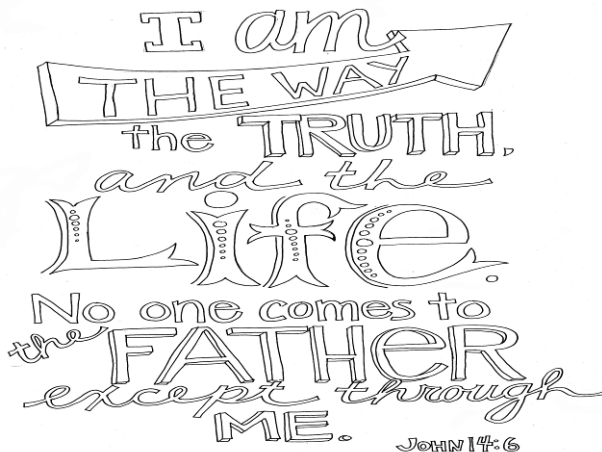 I am
THE WAY
the TRUTH,
and the
Life.
No one comes to
the FATHeR
except through
ME.
JOHN 14:6